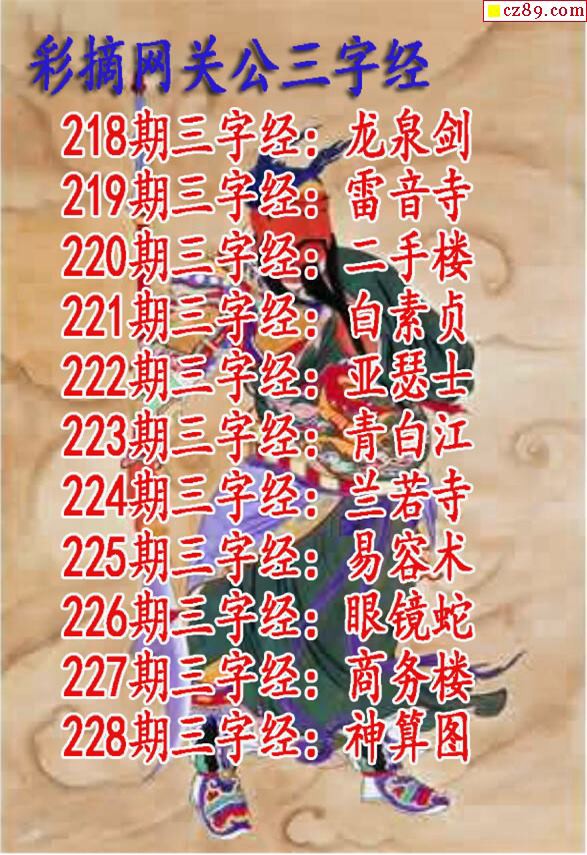 cz89.com
彩摘网关公三字经
218期三字经：龙泉剑
219期三字经：雷音寺
220期三字经：二手楼
221期三字经：白素贞
222期三字经：亚瑟士
223期三字经：青白江
224期三字经：兰若寺
225期三字经：易容术
226期三字经：眼镜蛇
227期三字经：商务楼
228期三字经：神算图